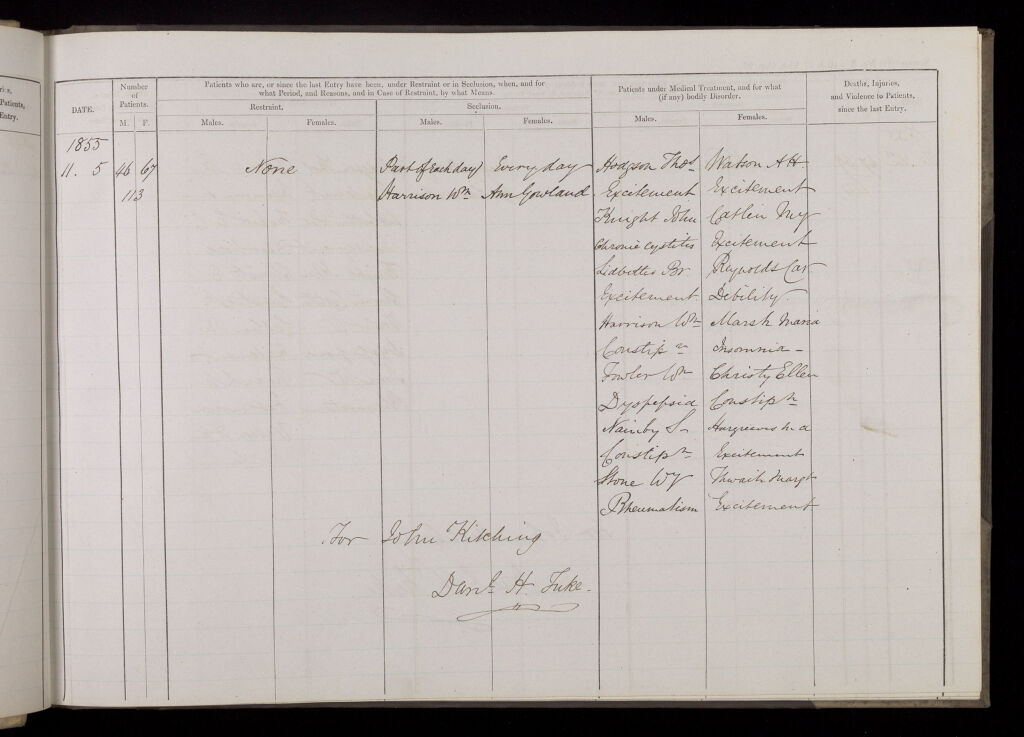 ries,
Patients,
Entry.
DATE.
Number
of
Patients.
M. F.
Patients who are, or since the last Entry have been, under Restraint or in Seclusion, when, and for
what Period, and Reasons, and in Case of Restraint, by what Means.
Restraint. Seclusion.
Males. Females. Males. Females.
Patients under Medical Treatment, and for what
(if any) bodily Disorder.
Males. Females.
Deaths, Injuries,
and Violence to Patients,
since the last Entry.
1855
11. 5 46 67 None Part of each day Every day Hodgson Thos Watson A H
113 Harrison Wm Ann Gowland Excitement Excitement
Knight John Catlin My
Chronic cystitis Excitement
Br Reynolds Car
Excitement Debility.
Harrison Wm Marsh Maria
Constipn Insomnia -
Fowler Wm Christy Ellen
Dyspepsia Constipn
Nainby S- Hargreaves
Constipn Excitement
Stone Wy Margt
Rheumatism Excitement
For John Kitching
Danl H. Tuke.